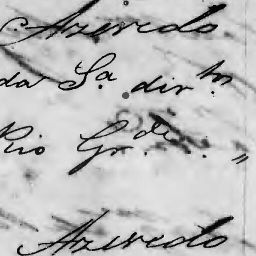 Azevedo
da Sa. dirm.
Rio Gr.de. "
Azevedo